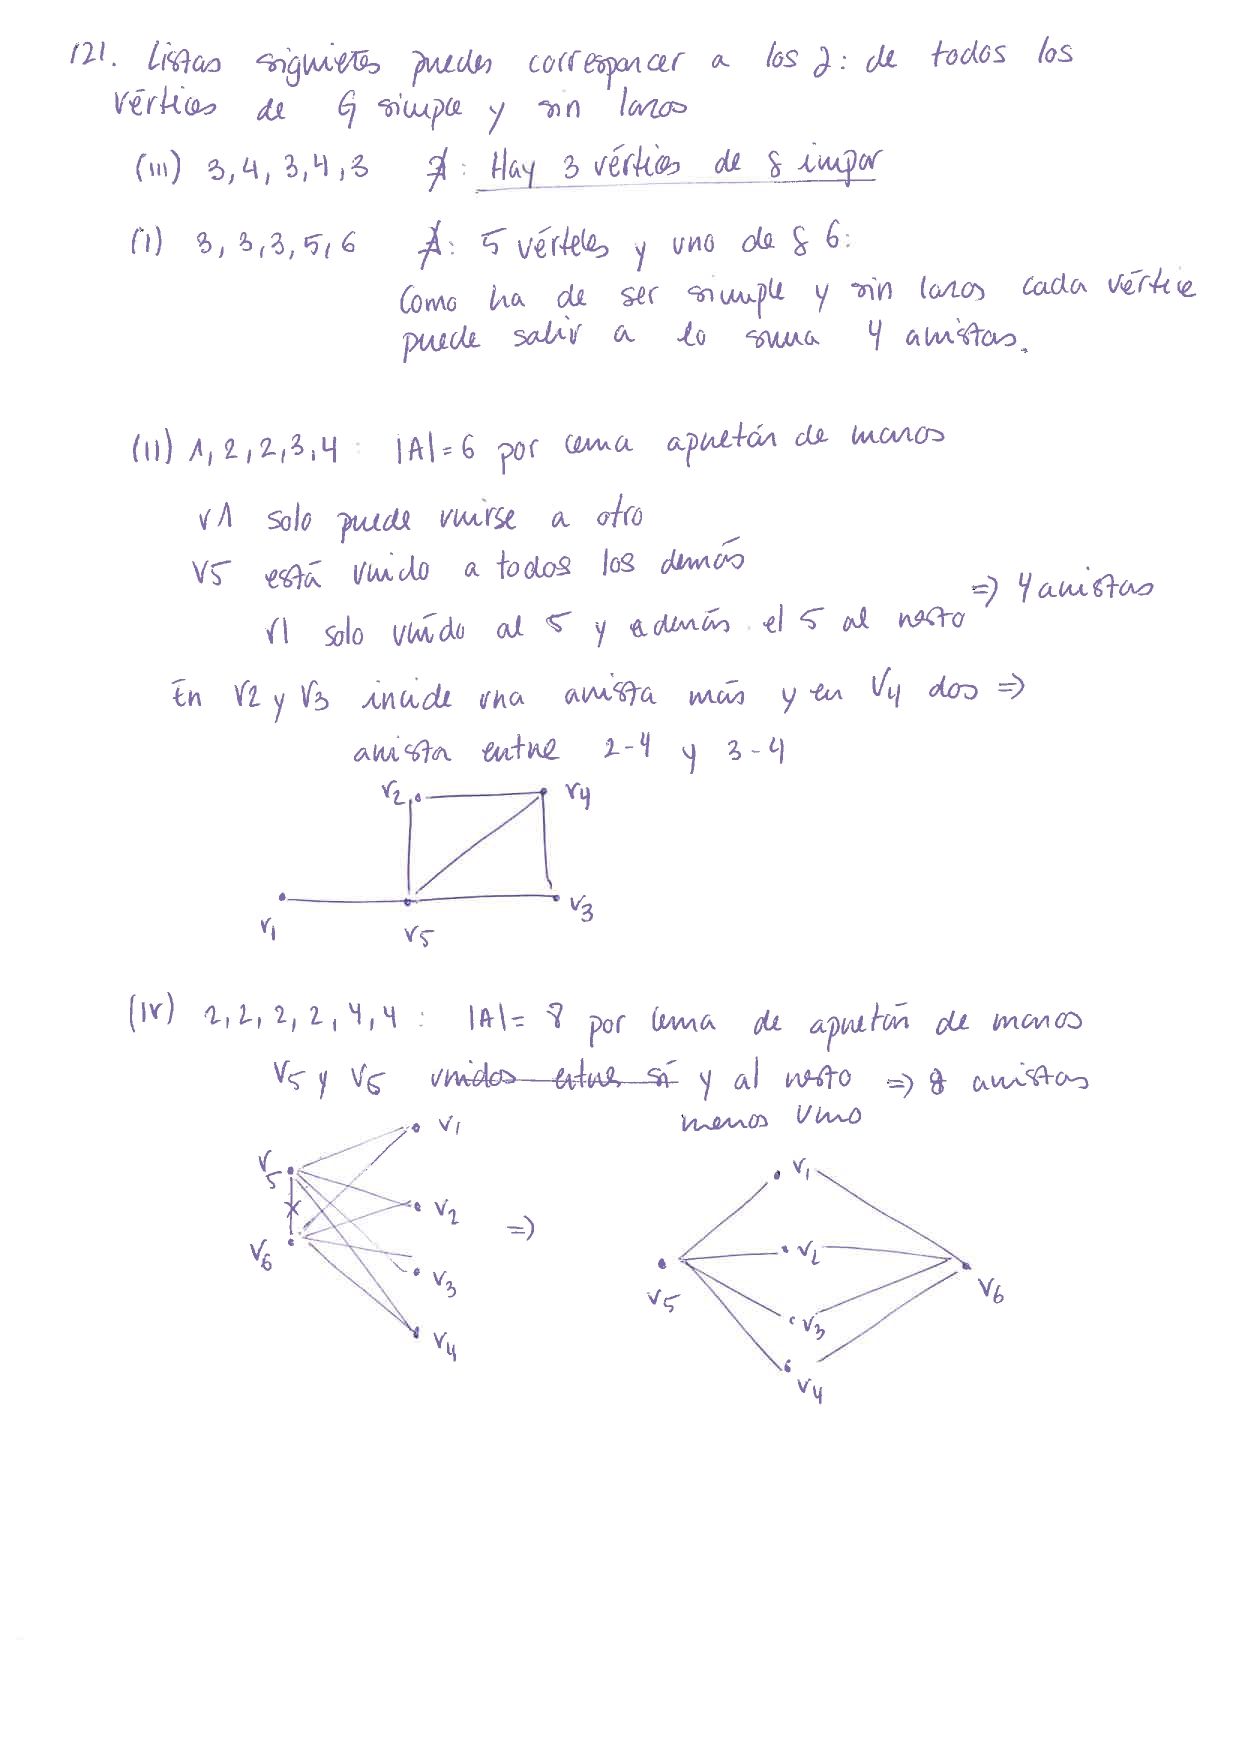 121. Listas siguietes puedes correspancer a los ∂: de todos los
vértices de G simple y sin lazos
(III) 3, 4, 3, 4, 3 ∄: Hay 3 vértices de δ impar
(I) 3, 3, 3, 5, 6 ∄: 5 vérteles y uno de δ 6:
Como ha de ser simple y sin lazos cada vértice
puede salir a lo suma 4 aristas.
(II) 1, 2, 2, 3, 4 : |A| = 6 por lema apretón de manos
V1 solo puede unirse a otro
V5 está unido a todos los demás
V1 solo unido al 5 y además el 5 al resto => 4 aristas
En V2 y V3 incide una arista más y en V4 dos =>
arista entre 2-4 y 3-4
V2 V4
V1 V5 V3
(IV) 2, 2, 2, 2, 4, 4 : |A| = 8 por lema de apretón de manos
V5 y V6 unidos entre sí y al resto => 8 aristas
menos uno
V1
V5
V2 =>
V6
V3
V4
V1
V2
V5 V6
V3
V4